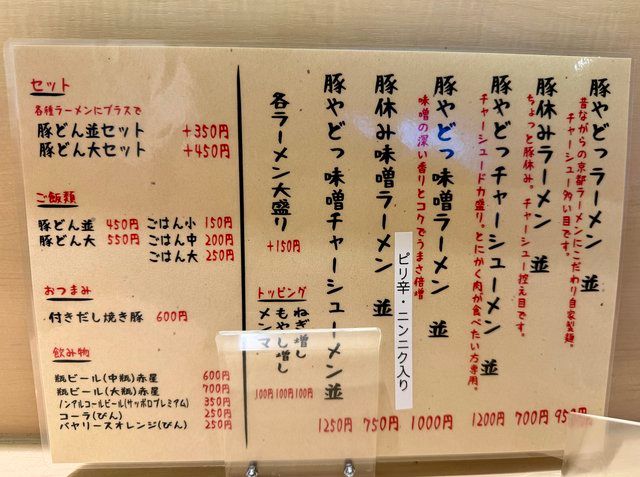 豚やどっラーメン 並
昔ながらの京都ラーメンにこだわり自家製麺。
チャーシュー多い目です。
豚休みラーメン 並
ちょっと豚休み。チャーシュー控え目です。
700円
豚やどっチャーシューメン 並
チャーシュードカ盛り。とにかく肉が食べたい方専用。
1200円
豚やどっ味噌ラーメン 並
味噌の深い香りとコクでうまさ倍増
1000円
ピリ辛・ニンニク入り
豚休み味噌ラーメン 並
750円
豚やどっ味噌チャーシューメン 並
1250円
各ラーメン大盛り
+150円
トッピング
ねぎ増し
100円
もやし増し
100円
メンマ
100円
セット
各種ラーメンにプラスで
豚どん並セット +350円
豚どん大セット +450円
ご飯類
豚どん並 450円 ごはん小 150円
豚どん大 550円 ごはん中 200円
ごはん大 250円
おつまみ
付きだし焼き豚 600円
飲み物
瓶ビール(中瓶)赤星 600円
瓶ビール(大瓶)赤星 700円
ノンアルコールビール(サッポロプレミアム) 350円
コーラ(びん) 250円
バヤリースオレンジ(びん) 250円